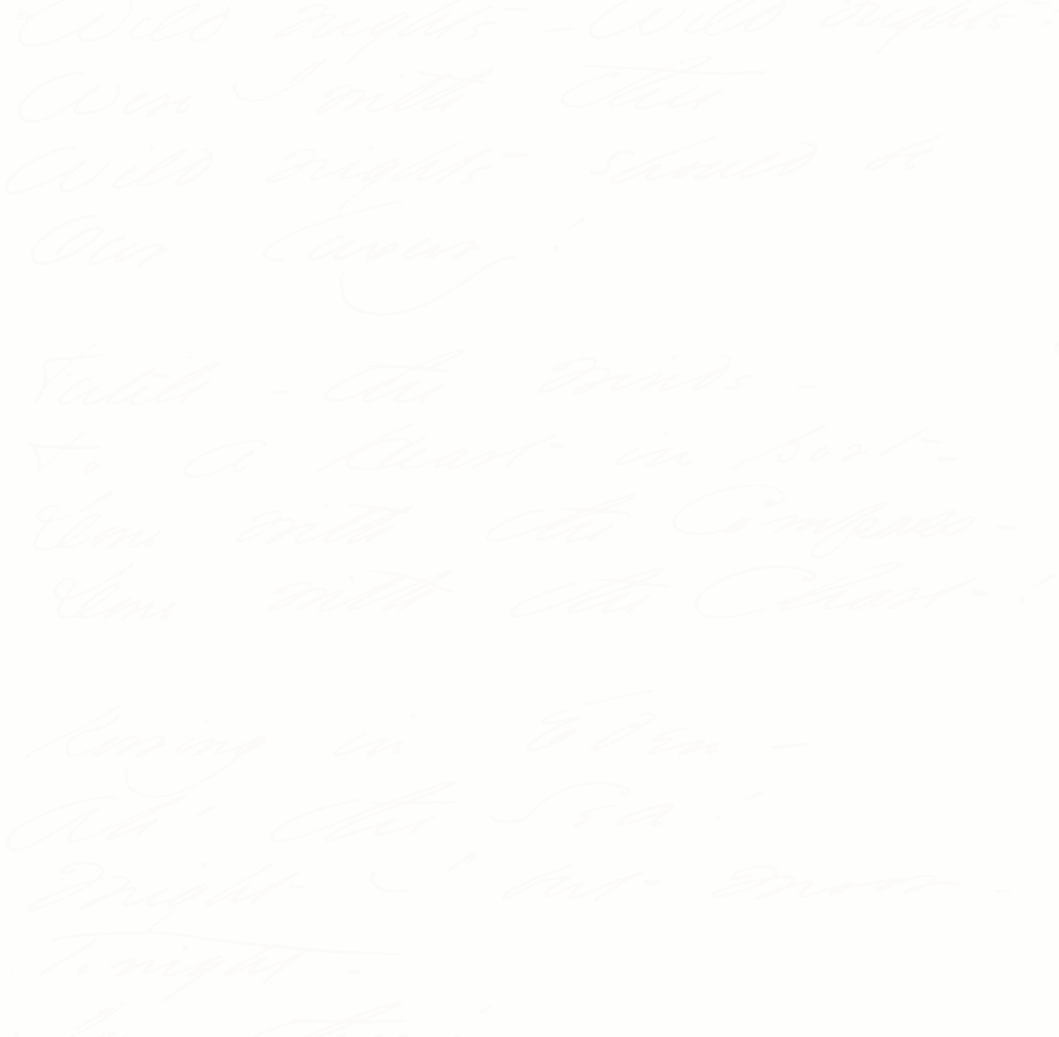 Wild nights - Wild nights -
Were I with thee
Wild nights should be
Our luxury!
Futile - the winds -
To a Heart in port -
Done with the Compass -
Done with the Chart!
Rowing in Eden -
Ah - the Sea!
Might I but moor -
Tonight -